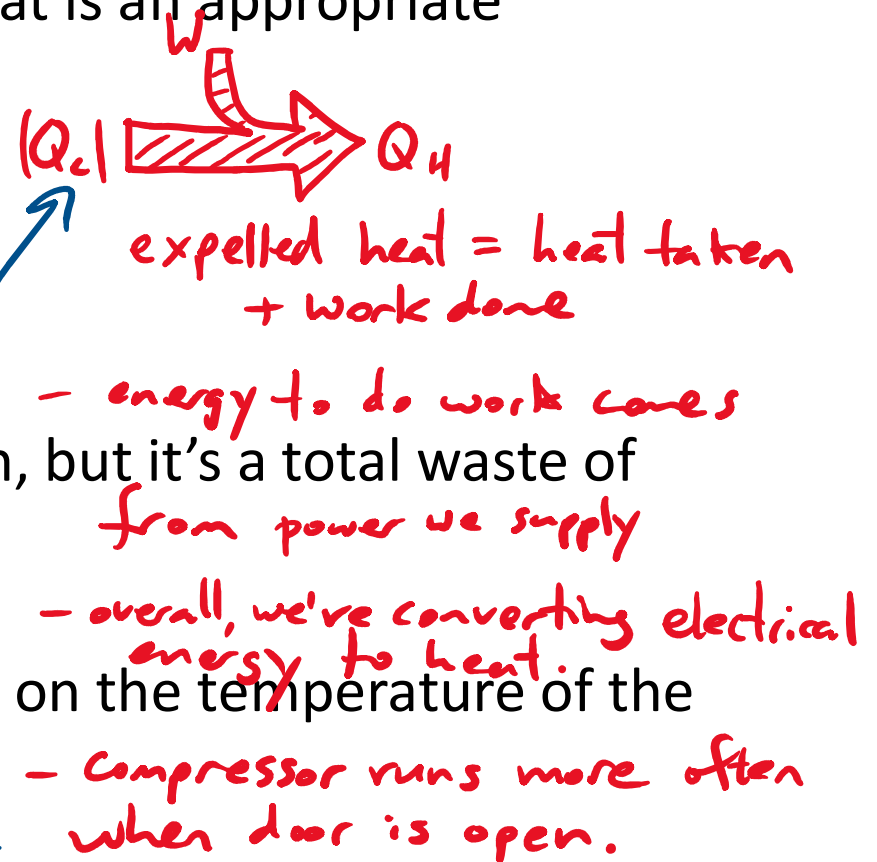 at is an appropriate
W
|Qc| QH
expelled heat = heat taken
+ work done
- energy to do work comes
n, but it's a total waste of
from power we supply
- overall, we're converting electrical
energy to heat.
on the temperature of the
- compressor runs more often
when door is open.